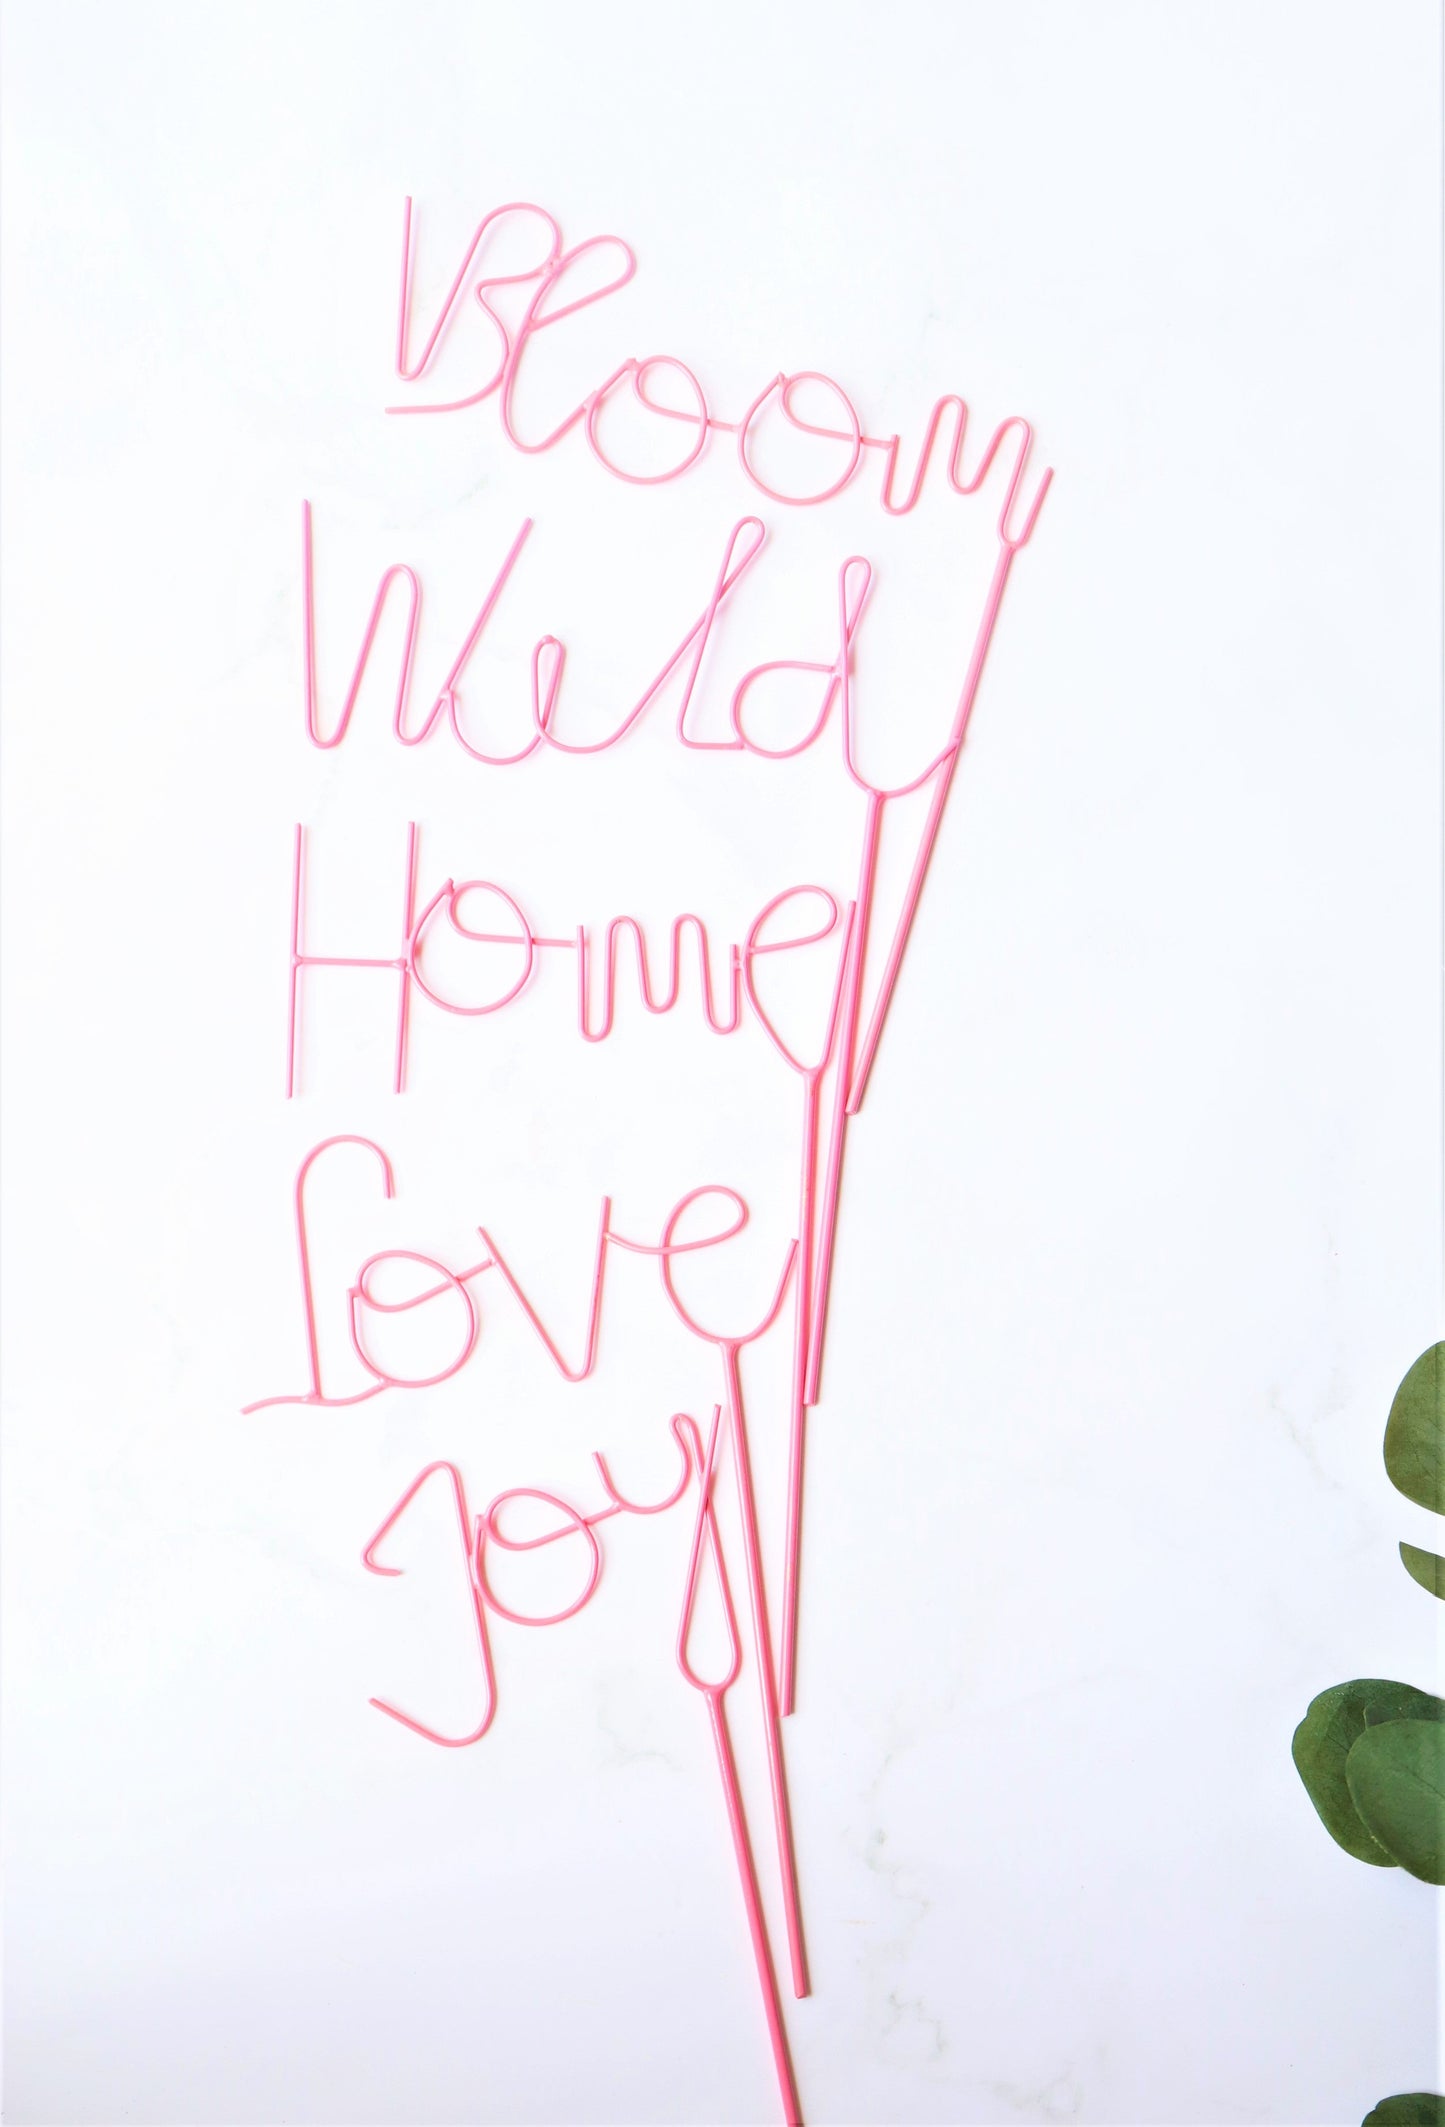 Bloom
Wild
Home
Love
Joy